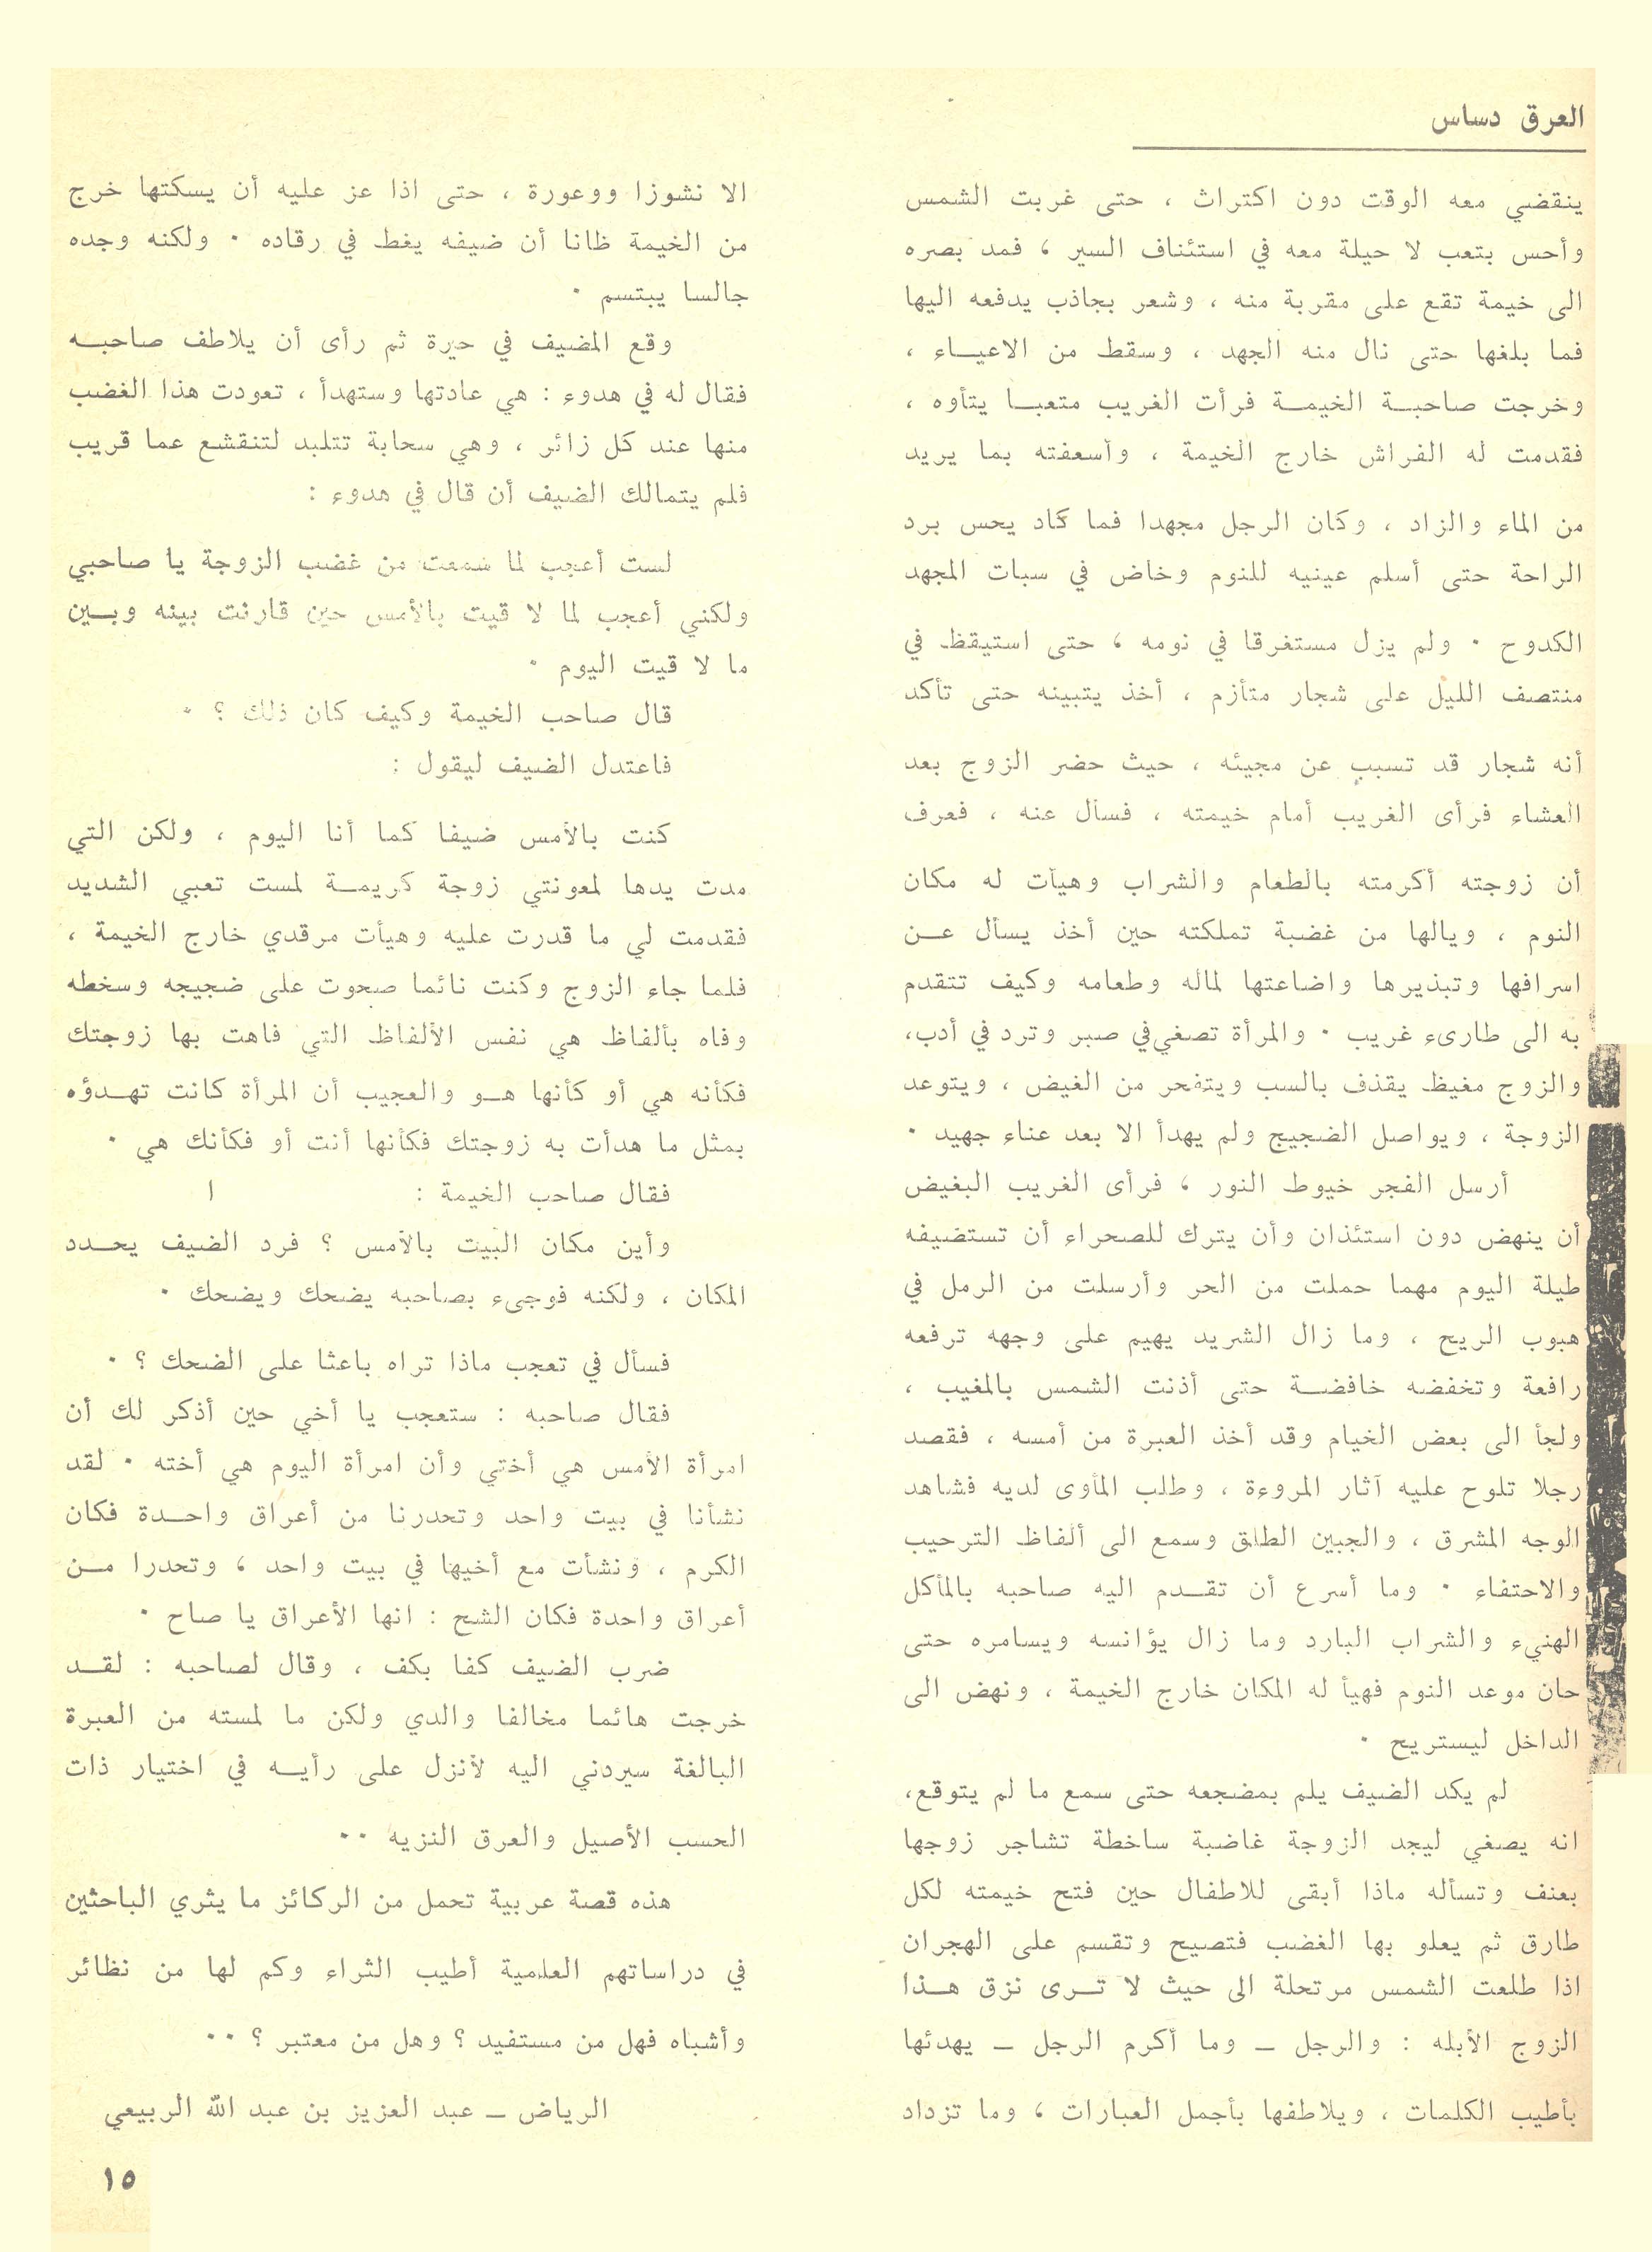 العرق دساس
ينقضي معه الوقت دون اكتراث ، حتى غربت الشمس
وأحس بتعب لا حيلة معه في استئناف السير ، فمد بصره
الى خيمة تقع على مقربة منه ، وشعر بجاذب يدفعه اليها
فما بلغها حتى نال منه الجهد ، وسقط من الاعيــاء ،
وخرجت صاحبــة الخيمــة فرأت الغريب متعبــا يتأوه ،
فقدمت له الفراش خارج الخيمة ، وأسعفته بما يريد
من الماء والزاد ، وكان الرجل مجهدا فما كاد يحس برد
الراحة حتى أسلم عينيه للنوم وخاض في سبات المجهد
الكدوح . ولم يزل مستغرقا في نومه ، حتى استيقظ في
منتصف الليل على شجار متأزم ، أخذ يتبينه حتى تأكد
أنه شجار قد تسبب عن مجيئه ، حيث حضر الزوج بعد
العشاء فرأى الغريب أمام خيمته ، فسأل عنه ، فعرف
أن زوجته أكرمته بالطعام والشراب وهيأت له مكان
النوم ، ويالها من غضبة تملكته حين أخذ يسأل عــن
اسرافها وتبذيرها واضاعتها لماله وطعامه وكيف تتقدم
به الى طارىء غريب . والمرأة تصغي في صبر وترد في أدب،
والزوج مغيظ يقذف بالسب ويتفجر من الغيض ، ويتوعد
الزوجة ، ويواصل الضجيج ولم يهدأ الا بعد عناء جهيد .
أرسل الفجر خيوط النور ، فرأى الغريب البغيض
أن ينهض دون استئذان وأن يترك للصحراء أن تستضيفه
طيلة اليوم مهما حملت من الحر وأرسلت من الرمل في
هبوب الريح ، وما زال الشريد يهيم على وجهه ترفعه
رافعة وتخفضه خافضــة حتى أذنت الشمس بالمغيب ،
ولجأ الى بعض الخيام وقد أخذ العبرة من أمسه ، فقصد
رجلا تلوح عليه آثار المروءة ، وطلب المأوى لديه فشاهد
الوجه المشرق ، والجبين الطلق وسمع الى ألفاظ الترحيب
والاحتفاء . وما أسرع أن تقــدم اليه صاحبه بالمأكل
الهنيء والشراب البارد وما زال يؤانسه ويسامره حتى
حان موعد النوم فهيأ له المكان خارج الخيمة ، ونهض الى
الداخل ليستريح .
لم يكد الضيف يلم بمضجعه حتى سمع ما لم يتوقع،
انه يصغي ليجد الزوجة غاضبة ساخطة تشاجر زوجها
بعنف وتسأله ماذا أبقى للاطفال حين فتح خيمته لكل
طارق ثم يعلو بها الغضب فتصيح وتقسم على الهجران
اذا طلعت الشمس مرتحلة الى حيث لا تــرى نزق هــذا
الزوج الأبله : والرجل ــ وما أكرم الرجل ــ يهدئها
بأطيب الكلمات ، ويلاطفها بأجمل العبارات ، وما تزداد
الا نشوزا ووعورة ، حتى اذا عز عليه أن يسكتها خرج
من الخيمة ظانا أن ضيفه يغط في رقاده . ولكنه وجده
جالسا يبتسم .
وقع المضيف في حيرة ثم رأى أن يلاطف صاحبــه
فقال له في هدوء : هي عادتها وستهدأ ، تعودت هذا الغضب
منها عند كل زائر ، وهي سحابة تتلبد لتنقشع عما قريب
فلم يتمالك الضيف أن قال في هدوء :
لست أعجب لما سمعت من غضب الزوجة يا صاحبي
ولكني أعجب لما لا قيت بالأمس حين قارنت بينه وبــين
ما لا قيت اليوم .
قال صاحب الخيمة وكيف كان ذلك ؟ .
فاعتدل الضيف ليقول :
كنت بالأمس ضيفا كما أنا اليوم ، ولكن التي
مدت يدها لمعونتي زوجة كريمــة لمست تعبي الشديد
فقدمت لي ما قدرت عليه وهيأت مرقدي خارج الخيمة ،
فلما جاء الزوج وكنت نائما صحوت على ضجيجه وسخطه
وفاه بألفاظ هي نفس الألفاظ التي فاهت بها زوجتك
فكأنه هي أو كأنها هــو والعجيب أن المرأة كانت تهــدؤه
بمثل ما هدأت به زوجتك فكأنها أنت أو فكأنك هي .
فقال صاحب الخيمة :
وأين مكان البيت بالأمس ؟ فرد الضيف يحــدد
المكان ، ولكنه فوجىء بصاحبه يضحك ويضحك .
فسأل في تعجب ماذا تراه باعثا على الضحك ؟ .
فقال صاحبه : ستعجب يا أخي حين أذكر لك أن
امرأة الأمس هي أختي وأن امرأة اليوم هي أخته . لقد
نشأنا في بيت واحد وتحدرنا من أعراق واحــدة فكان
الكرم ، ونشأت مع أخيها في بيت واحد ، وتحدرا مــن
أعراق واحدة فكان الشح : انها الأعراق يا صاح .
ضرب الضيف كفا بكف ، وقال لصاحبه : لقــد
خرجت هائما مخالفا والدي ولكن ما لمسته من العبرة
البالغة سيردني اليه لأنزل على رأيــه في اختيار ذات
الحسب الأصيل والعرق النزيه ..
هذه قصة عربية تحمل من الركائز ما يثري الباحثين
في دراساتهم العلمية أطيب الثراء وكم لها من نظائر
وأشباه فهل من مستفيد ؟ وهل من معتبر ؟ ..
الرياض ــ عبد العزيز بن عبد الله الربيعي
١٥